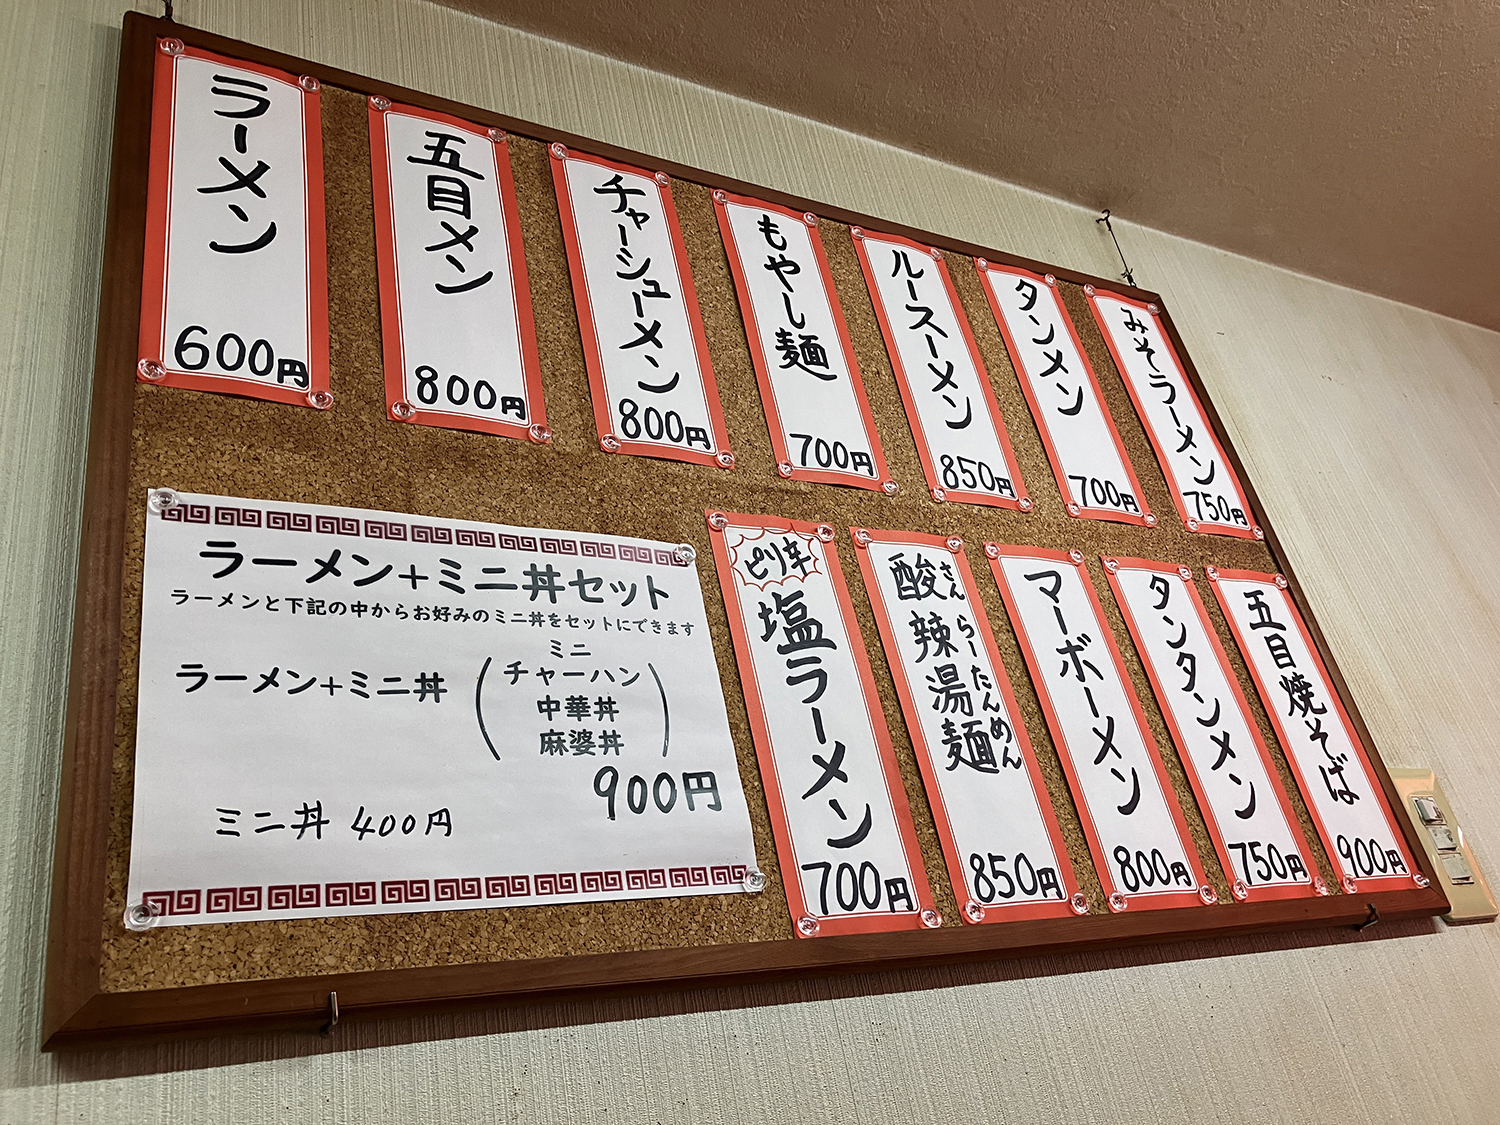 ラーメン
600円
五目メン
800円
チャーシューメン
800円
もやし麺
700円
ルースーメン
850円
タンメン
700円
みそラーメン
750円
ラーメン+ミニ丼セット
ラーメンと下記の中からお好みのミニ丼をセットにできます
ラーメン+ミニ丼
(ミニ
チャーハン
中華丼
麻婆丼)
900円
ミニ丼 400円
ピリ辛
塩ラーメン
700円
酸辣湯麺
さんらーたんめん
850円
マーボーメン
800円
タンタンメン
750円
五目焼そば
900円